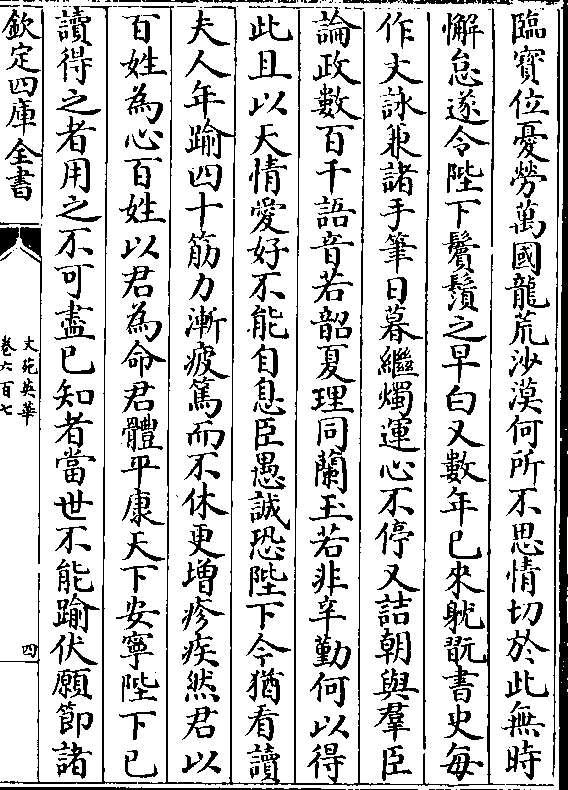 臨寳位憂勞萬國龍荒沙漠何所不思情切於此無時
懈怠遂令陛下鬢鬚之早白又數年已來躭翫書史每
作文詠兼諸手筆日暮繼燭運心不停又詰朝與羣臣
論政數百千語音若韶夏理同蘭玉若非辛勤何以得
此且以天情愛好不能自息臣愚誠恐陛下今猶看讀
夫人年踰四十筋力漸疲篤而不休更增疹疾然君以
百姓為心百姓以君為命君體平康天下安寧陛下已
讀得之者用之不可盡已知者當世不能踰伏願節諸
欽定四庫全書
文苑英華
卷六百七
四